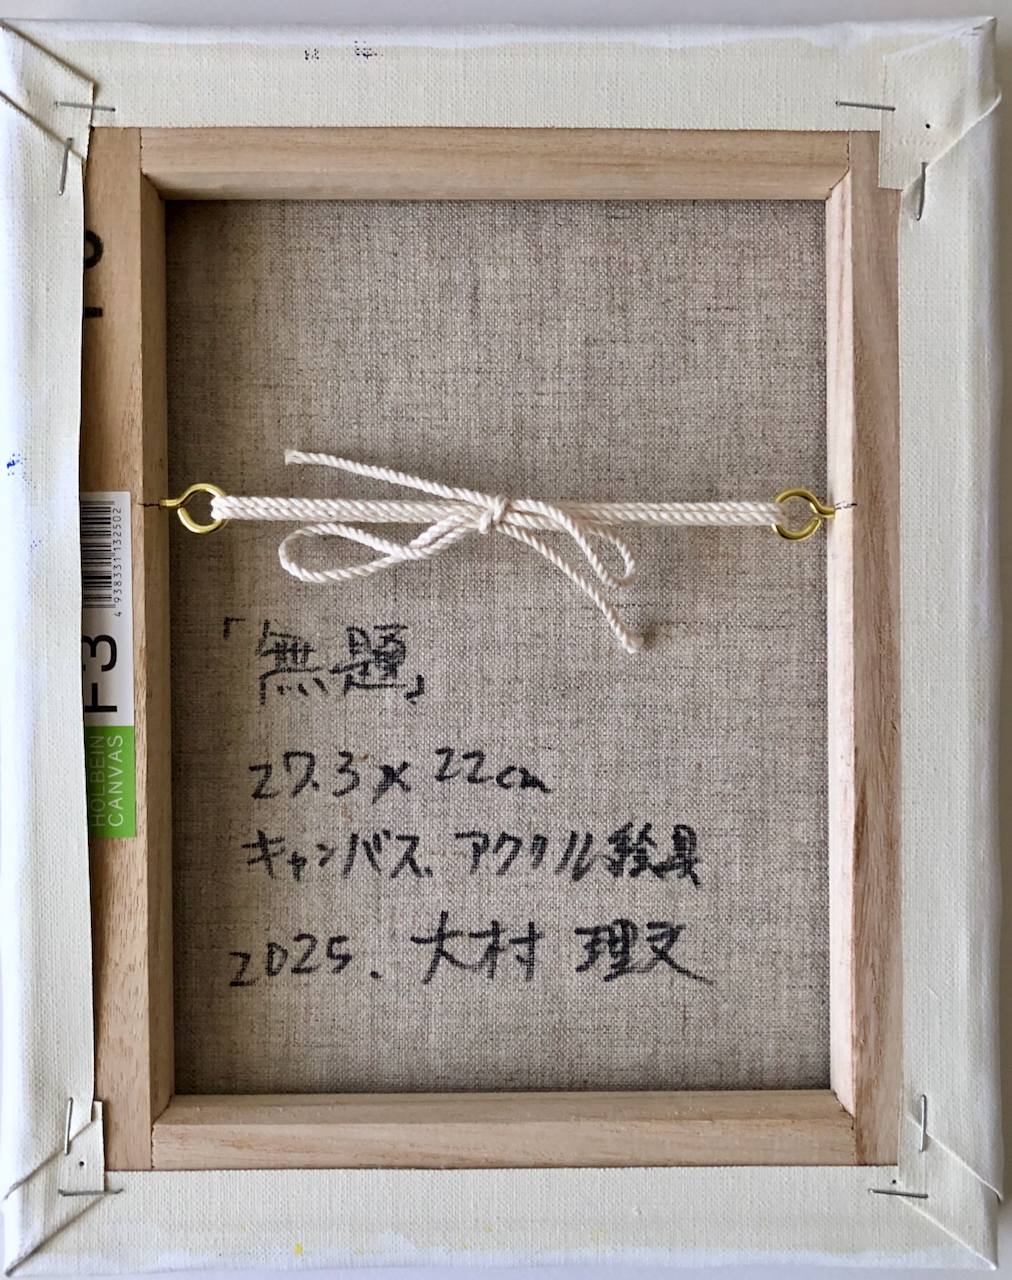 「無題」
27.3 x 22cm
キャンバス、アクリル絵具
2025. 大村 理文
4 938331 132502
F3
HOLBEIN
CANVAS